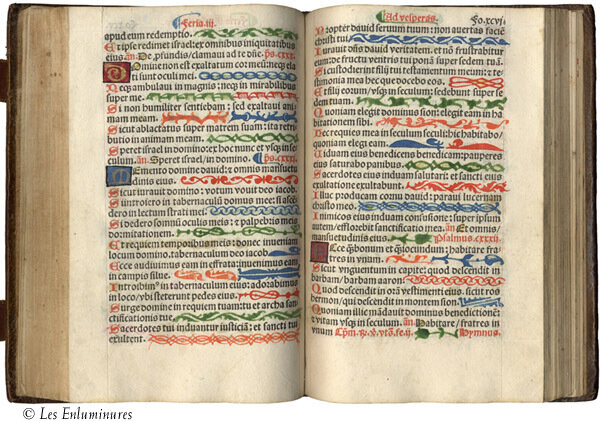 Feria.iii.
apud eum redemptio.
Et ipse redimet israel: ex omnibus iniquitatibus
eius. añ. De profundis / clamaui ad te dñe. p̃s.cxxx.
Domine non est exaltatum cor meum: neq̃ ela
ti sunt oculi mei.
Neq̃ ambulaui in magnis: neq̃ in mirabilibus
super me.
Si non humiliter sentiebam: sed exaltaui ani
mam meam.
Sicut ablactatus super matrem suam: ita retri
butio in animam meam.
Speret israel in domino: ex hoc nunc et vsq̃ in se
culum. añ. Speret israel / in domino. p̃s.cxxxi.
Memento domine dauid: et omnis mansuetu
dinis eius.
Sicut iurauit domino: votum vouit deo iacob.
Si introiero in tabernaculum domus mee: si ascen
dero in lectum strati mei.
Si dedero somnũ oculis meis: et palpebris meis
dormitationem.
Et requiem temporibus meis: donec inueniam
locum domino, tabernaculum deo iacob.
Ecce audiuimus eam in effrata: inuenimus eam
in campis silue.
Introibim⁹ in tabernaculum eius: adorabimus
in loco / vbi steterunt pedes eius.
Surge domine in requiem tuam: tu et archa san
ctificationis tue.
Sacerdotes tui induantur iusticiã: et sancti tui
exultent.
Ad vesperas. Fo.xcvi.
Propter dauid seruum tuum: non auertas faciẽ
christi tui.
Iurauit dñs dauid veritatem, et nõ frustrabitur
eum: de fructu ventris tui ponã super sedem tuã.
Si custodierint filij tui testamentum meum: z te
stimonia mea hec que docebo eos.
Et filij eorum / vsq̃ in seculum: sedebunt super se
dem tuam.
Quoniam elegit dominus sion: elegit eam in ha
bitationem sibi.
Hec requies mea in seculum seculi: hic habitabo /
quoniam elegi eam.
Viduam eius benedicens benedicam: pauperes
eius saturabo panibus.
Sacerdotes eius induam salutari: et sancti eius
exultatione exultabunt.
Illuc producam cornu dauid: paraui lucernam
christo meo.
Inimicos eius induam confusione: super ipsum
autem / efflorebit sanctificatio mea. añ. Et omnis /
mansuetudinis eius. Psalmus.cxxxii.
Ecce q̃ bonum et q̃ iocundum: habitare fra
tres in vnum.
Sicut vnguentum in capite: quod descendit in
barbam / barbam aaron.
Quod descendit in orã vestimenti eius, sicut ros
hermon / qui descendit in montem sion.
Quoniam illic mãdauit dominus benedictionẽ:
z vitam vsq̃ in seculum. añ. Habitare / fratres in
vnum Hymnus.
© Les Enluminures